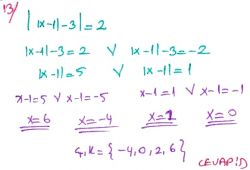 13/ | |x-1|-3|=2
|x-1|-3=2 ∨ |x-1|-3=-2
|x-1|=5 ∨ |x-1|=1
x-1=5 ∨ x-1=-5 x-1=1 ∨ x-1=-1
x=6 x=-4 x=2 x=0
Ç.K={-4,0,2,6}
CEVAP:D